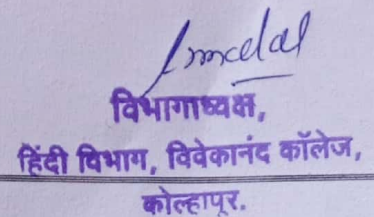 विभागाध्यक्ष,
हिंदी विभाग, विवेकानंद कॉलेज,
कोल्हापूर.